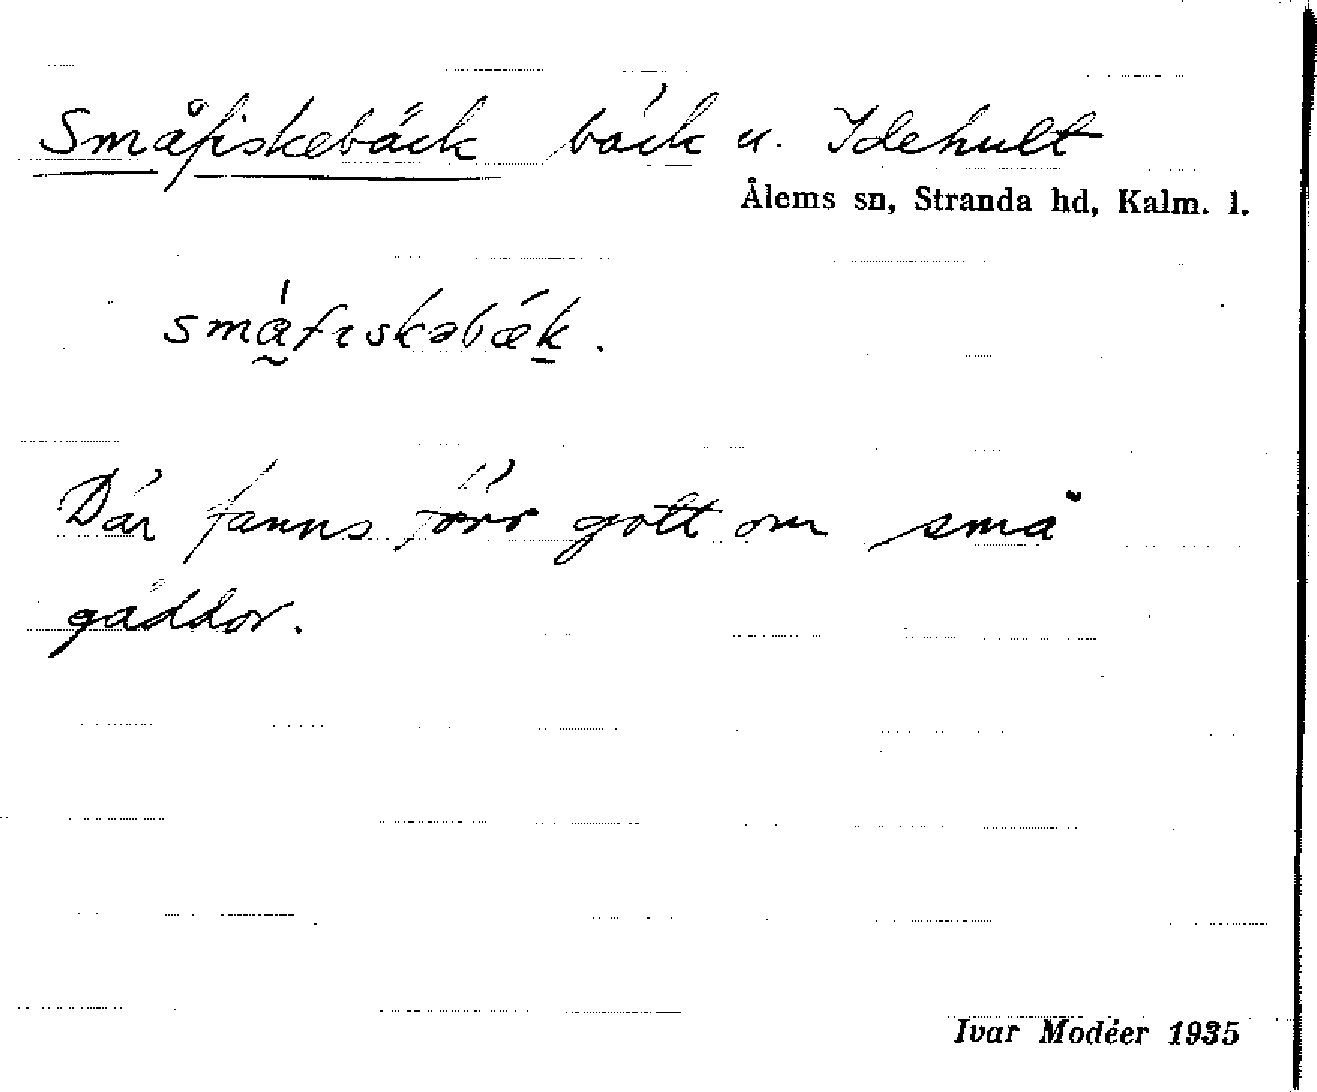 Småfiskebäck bäck u. Idehult
Ålems sn, Stranda hd, Kalm. l.
småfiskəbæk.
Där fanns förr gott om små
gäddor.
Ivar Modéer 1935